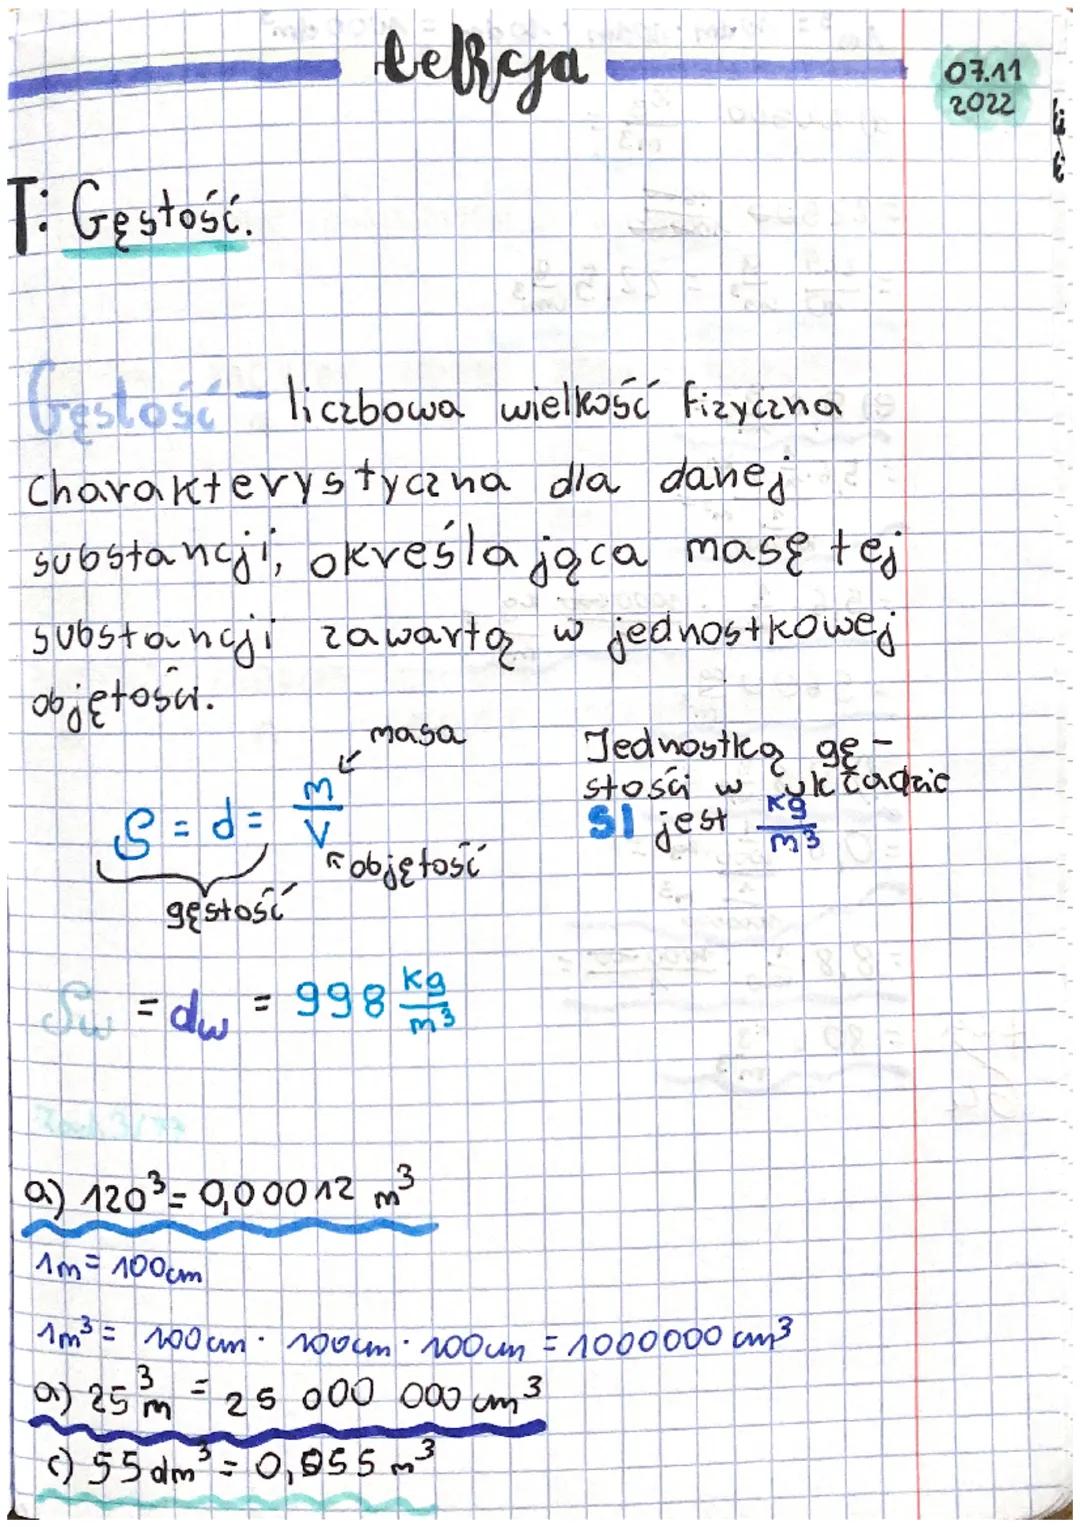 Lekcja
07.11
2022
T: Gęstość.
Gęstość - liczbowa wielkość fizyczna
charakterystyczna dla danej
substancji, określająca masę tej
substancji zawartą w jednostkowej
objętości.
masa
ρ = d = m/V
objętość
gęstość
Jednostką gę-
stości w układzie
SI jest kg/m³
ρw = dw = 998 kg/m³
Zad. 3/77
a) 120³ = 0,00012 m³
1m = 100cm
1m³ = 100cm · 100cm · 100cm = 1000000 cm³
a) 25 m³ = 25 000 000 cm³
c) 55 dm³ = 0,055 m³